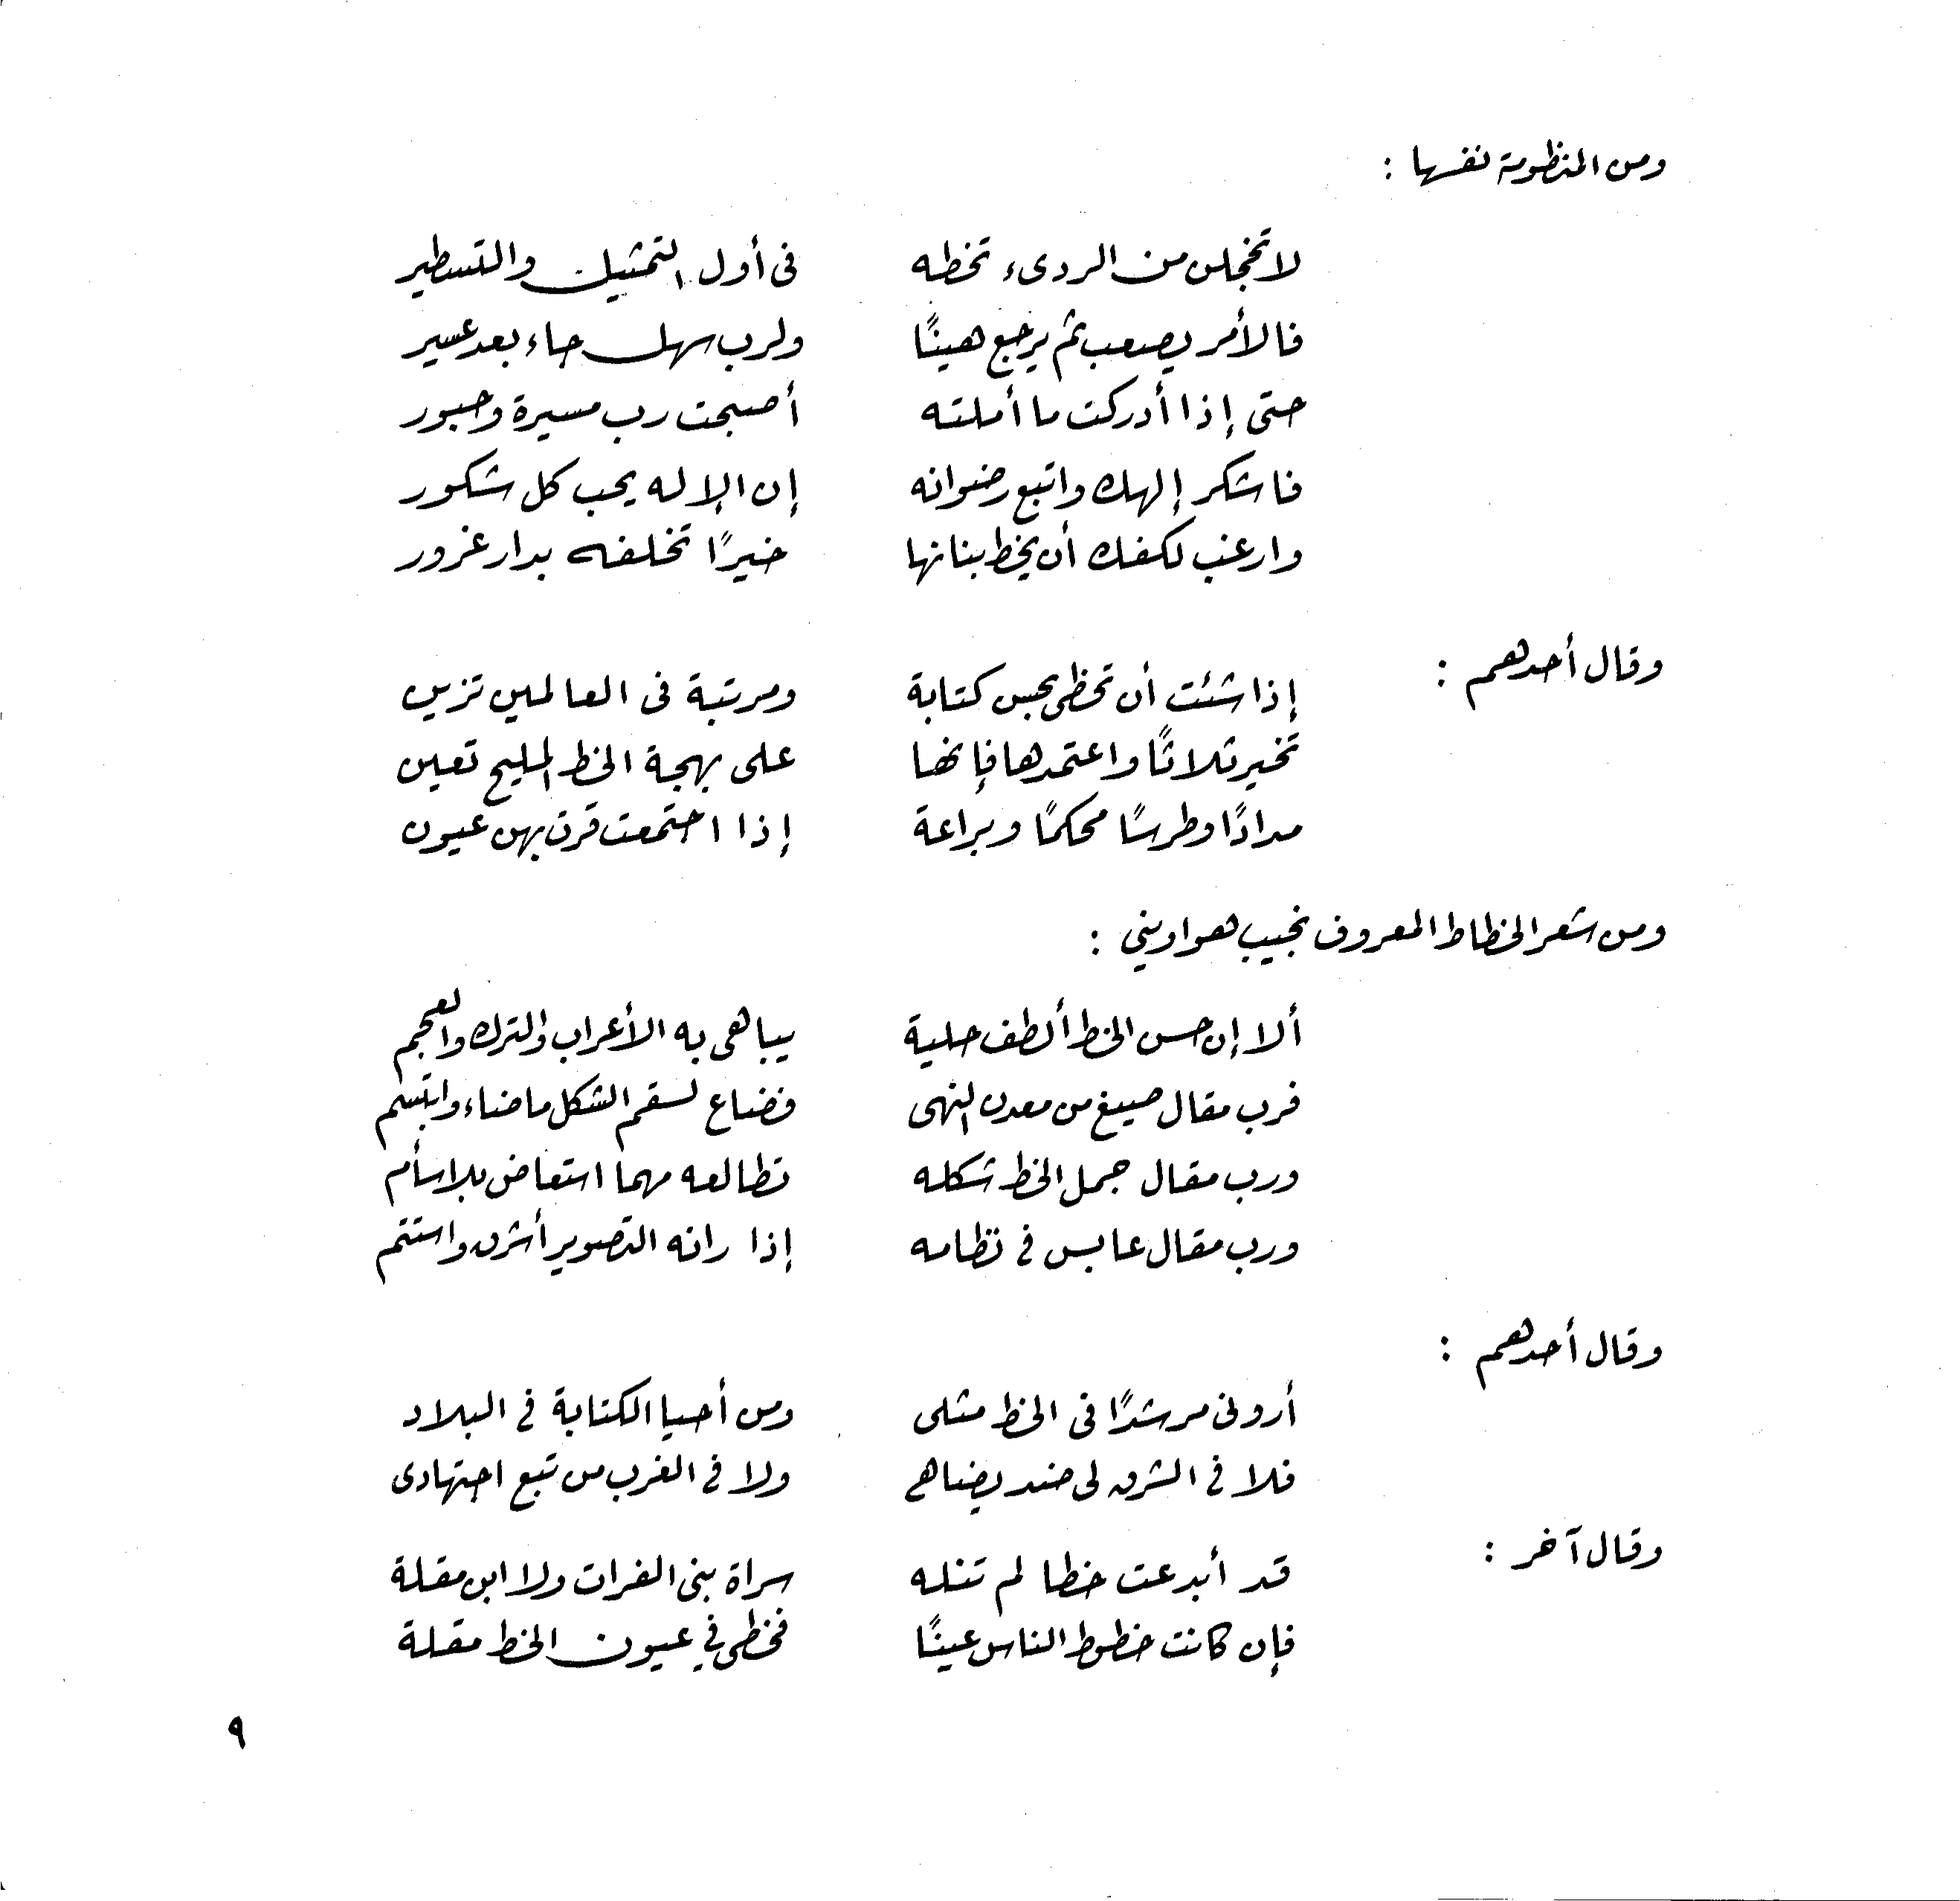 ومن المنظومة نفسها :
لا تخجلن من الردىء تخطه فى أول التمثيل والتسطير
فالأمر يصعب ثم يرجع هينًا ولرب سهل جاء بعد عسير
حتى إذا أدركت ما أملته أصبحت رب مسيرة وحبور
فاشكر إلهك واتبع رضوانه إن الإله يحب كل شكور
وارغب لكفك أن يخط بنانها خيرًا تخلفه بدار غرور
وقال أحدهم :
إذا شئت أن تحظى بحسن كتابة ومرتبة فى العالمين تزين
تخير ثلاثًا واعتمدها فإنها على بهجة الخط المليح تعين
مدادًا وطرسًا محكمًا وبراعة إذا اجتمعت قرت بهن عيون
ومن شعر الخطاط المعروف نجيب هواوينى :
ألا إن حسن الخط ألطف حلية يباهى به الأعراب والترك والعجم
فرب مقال صيغ من معدن النهى فضاع لسقم الشكل ما ضاء وابتسم
ورب مقال جمل الخط شكله تطالعه مهما استعاض بلا سأم
ورب مقال عابس فى نظامه إذا رانه التصوير أشرق واستتم
وقال أحدهم :
أرونى مرشدًا فى الخط مثلى ومن أحيا الكتابة فى البلاد
فلا فى الشرق لى ضد يضاهى ولا فى الغرب من تبع اجتهادى
وقال آخر :
قد أبدعت خطا لم تنله سراة بنى الفرات ولا ابن مقلة
فإن كانت خطوط الناس عينًا فخطى فى عيون الخط مقلة
٩